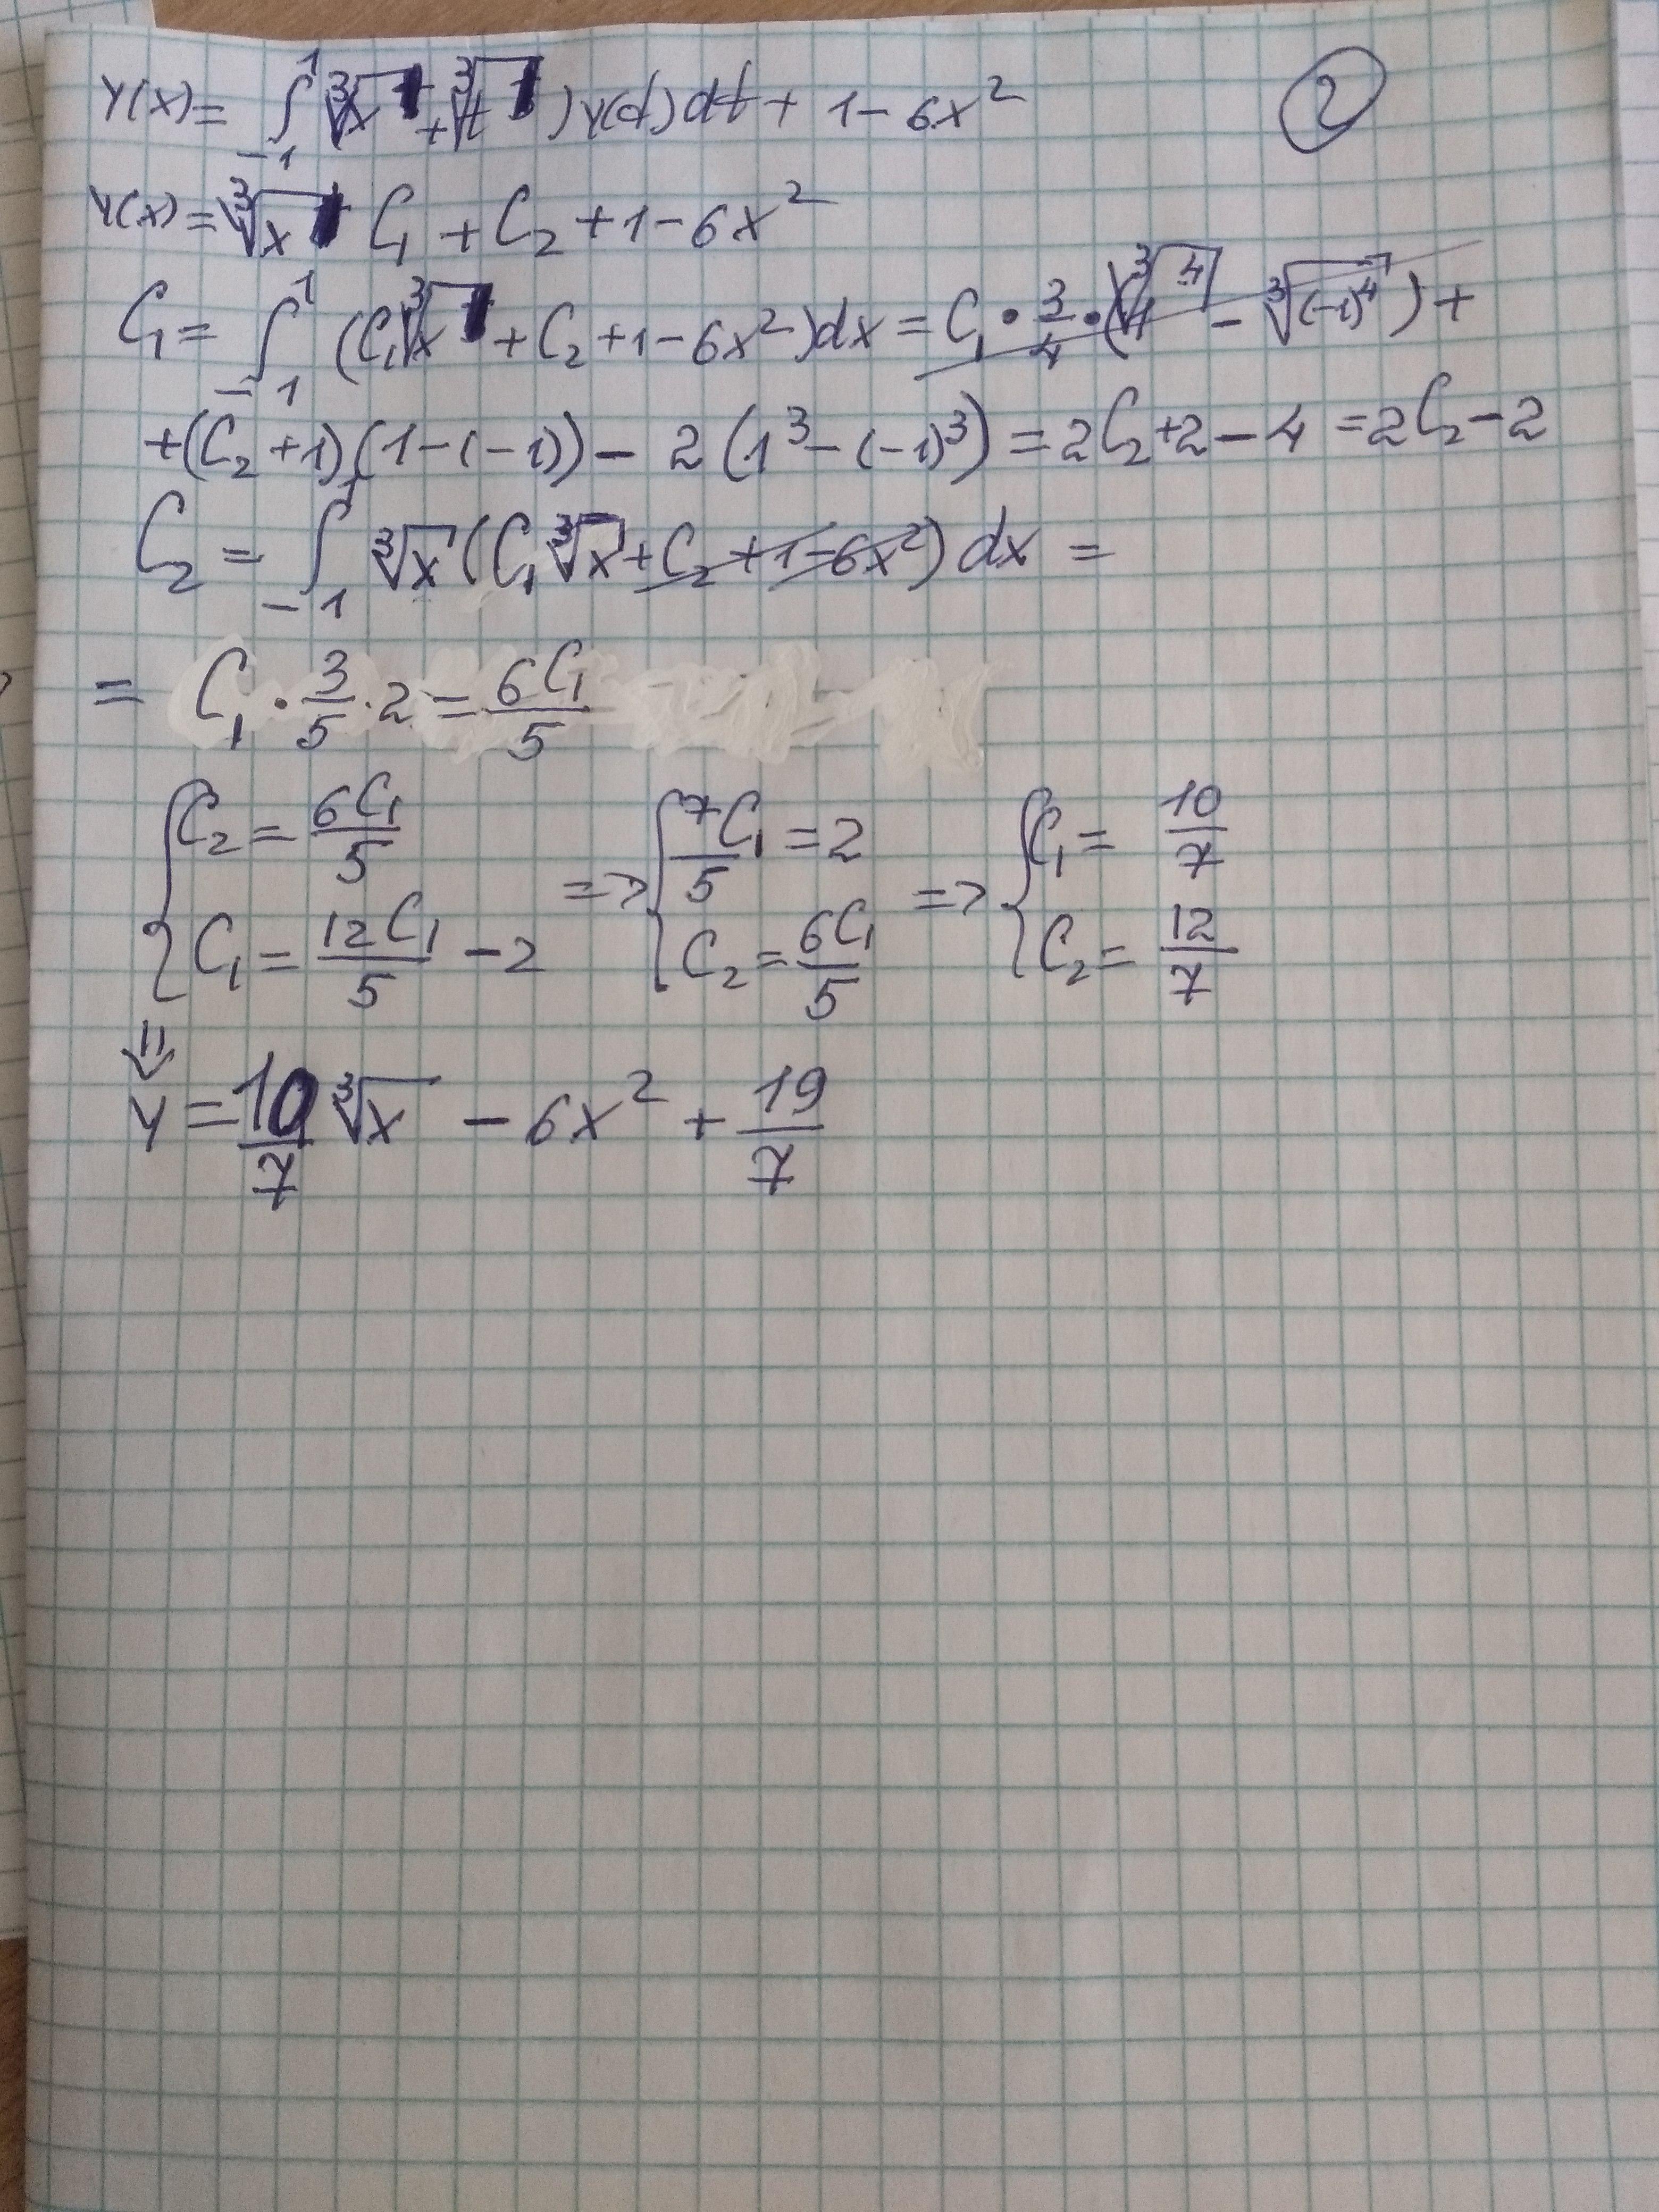 Y(x) = ∫₋₁¹ (∛x + ∛t) y(t) dt + 1 - 6x²
②
Y(x) = ∛x C₁ + C₂ + 1 - 6x²
C₁ = ∫₋₁¹ (C₁∛x + C₂ + 1 - 6x²) dx = C₁ · 3/4 · (∛1⁴ - ∛(-1)⁴) +
+ (C₂ + 1)(1 - (-1)) - 2(1³ - (-1)³) = 2C₂ + 2 - 4 = 2C₂ - 2
C₂ = ∫₋₁¹ ∛x (C₁∛x + C₂ + 1 - 6x²) dx =
= C₁ · 3/5 · 2 = 6C₁/5
{ C₂ = 6C₁/5 => { 7C₁/5 = 2 => { C₁ = 10/7
C₁ = 12C₁/5 - 2 C₂ = 6C₁/5 C₂ = 12/7
⇓
Y = 10/7 ∛x - 6x² + 19/7